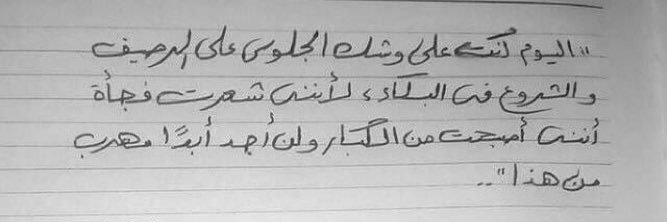 "اليوم كُنت على وشك الجلوس على الرصيف
والشروع في البكاء، لأنني شعرت فجأة
أنني أصبحت من الكبار ولن أجد أبدًا مهرب
من هذا"..